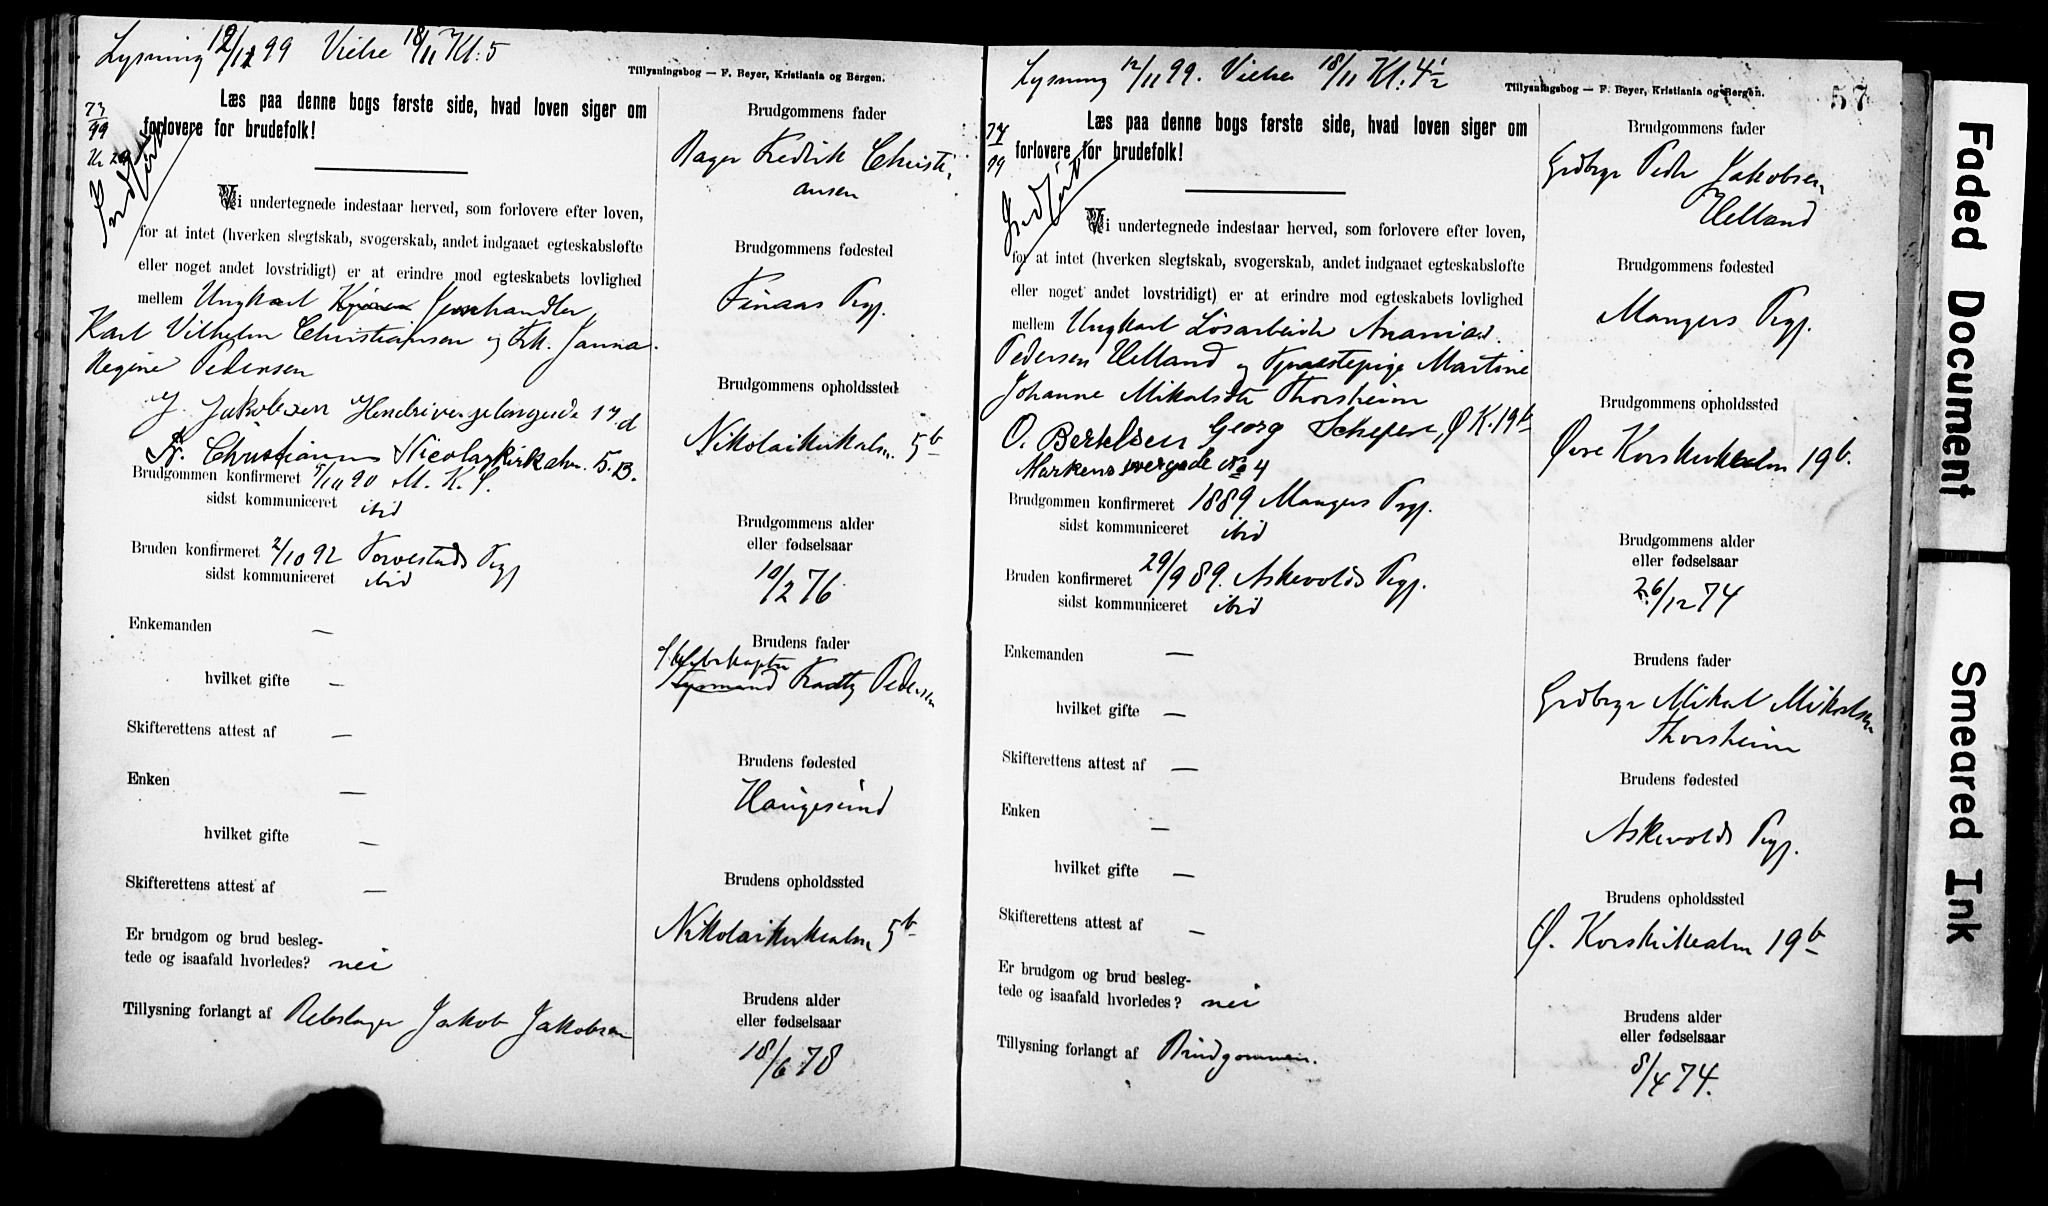 Lysning 12/11 99 Vielse 18/11 Kl. 5
Tillysningsbog — F. Beyer, Kristiania og Bergen.
73/99
Indført
Læs paa denne bogs første side, hvad loven siger om
forlovere for brudefolk!
Vi undertegnede indestaar herved, som forlovere efter loven,
for at intet (hverken slegtskab, svogerskab, andet indgaaet egteskabsløfte
eller noget andet lovstridigt) er at erindre mod egteskabets lovlighed
mellem Ungkarl Jernhandler
Karl Vilhelm Christiansen og Frk. Janna
Regine Pedersen
J. Jakobsen 17 d
Fr. Christiansen Nicolaykirkealm. 5.B.
Brudgommen konfirmeret 5/10 90 M. K. S.
sidst kommuniceret ibid
Bruden konfirmeret 2/10 92 Torvestads Prgj
sidst kommuniceret ibid
Enkemanden —
hvilket gifte —
Skifterettens attest af —
Enken —
hvilket gifte —
Skifterettens attest af —
Er brudgom og brud besleg-
tede og isaafald hvorledes? nei
Tillysning forlangt af Rebslager Jakob Jakobsen
Brudgommens fader
Bager Fredrik Christi
ansen
Brudgommens fødested
Finaas Prgj.
Brudgommens opholdssted
Nikolaikirkealm. 5b
Brudgommens alder
eller fødselsaar
10/2 76
Brudens fader
Pedersen
Brudens fødested
Haugesund
Brudens opholdssted
Nikolaikirkealm 5b
Brudens alder
eller fødselsaar
18/6 78
Lysning 12/11 99. Vielse 18/11 Kl. 4½
Tillysningsbog — F. Beyer, Kristiania og Bergen.
57
74/99
Indført
Læs paa denne bogs første side, hvad loven siger om
forlovere for brudefolk!
Vi undertegnede indestaar herved, som forlovere efter loven,
for at intet (hverken slegtskab, svogerskab, andet indgaaet egteskabsløfte
eller noget andet lovstridigt) er at erindre mod egteskabets lovlighed
mellem Ungkarl Løsarbeider Ananias
Pedersen Helland og Tjenestepige Martine
Johanne Mikalsdtr Thorsheim
O. Bertelsen Georg Ø K. 19b
Markens No 4
Brudgommen konfirmeret 1889 Mangers Prgj.
sidst kommuniceret ibid
Bruden konfirmeret 29/9 89. Askevolds Prgj.
sidst kommuniceret ibid
Enkemanden —
hvilket gifte —
Skifterettens attest af —
Enken —
hvilket gifte —
Skifterettens attest af —
Er brudgom og brud besleg-
tede og isaafald hvorledes? nei
Tillysning forlangt af Brudgommen.
Brudgommens fader
Grdbrgr Peder Jakobsen
Helland
Brudgommens fødested
Mangers Prgj.
Brudgommens opholdssted
Øvre Korskirkealm 19b.
Brudgommens alder
eller fødselsaar
26/12 74
Brudens fader
Grdbrgr Mikal Mikalsen
Thorsheim
Brudens fødested
Askevolds Prgj.
Brudens opholdssted
Ø. Korskirkealm 19b
Brudens alder
eller fødselsaar
8/4 74.
Faded Document
Smeared Ink